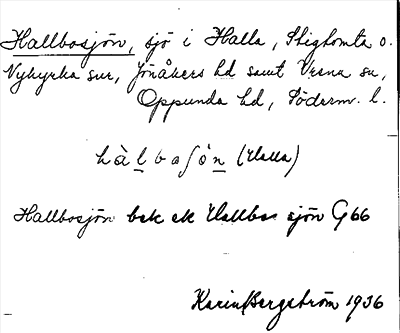 Hallbosjön, sjö i Halla, Stigtomta o.
Nykyrka snr, Jönåkers hd samt Vrena sn,
Oppunda hd, Söderm. l.
hàlbaʃo̊n (Halla)
Hallbosjön bek ek Hallbosjön G66
Karin Bergström 1936